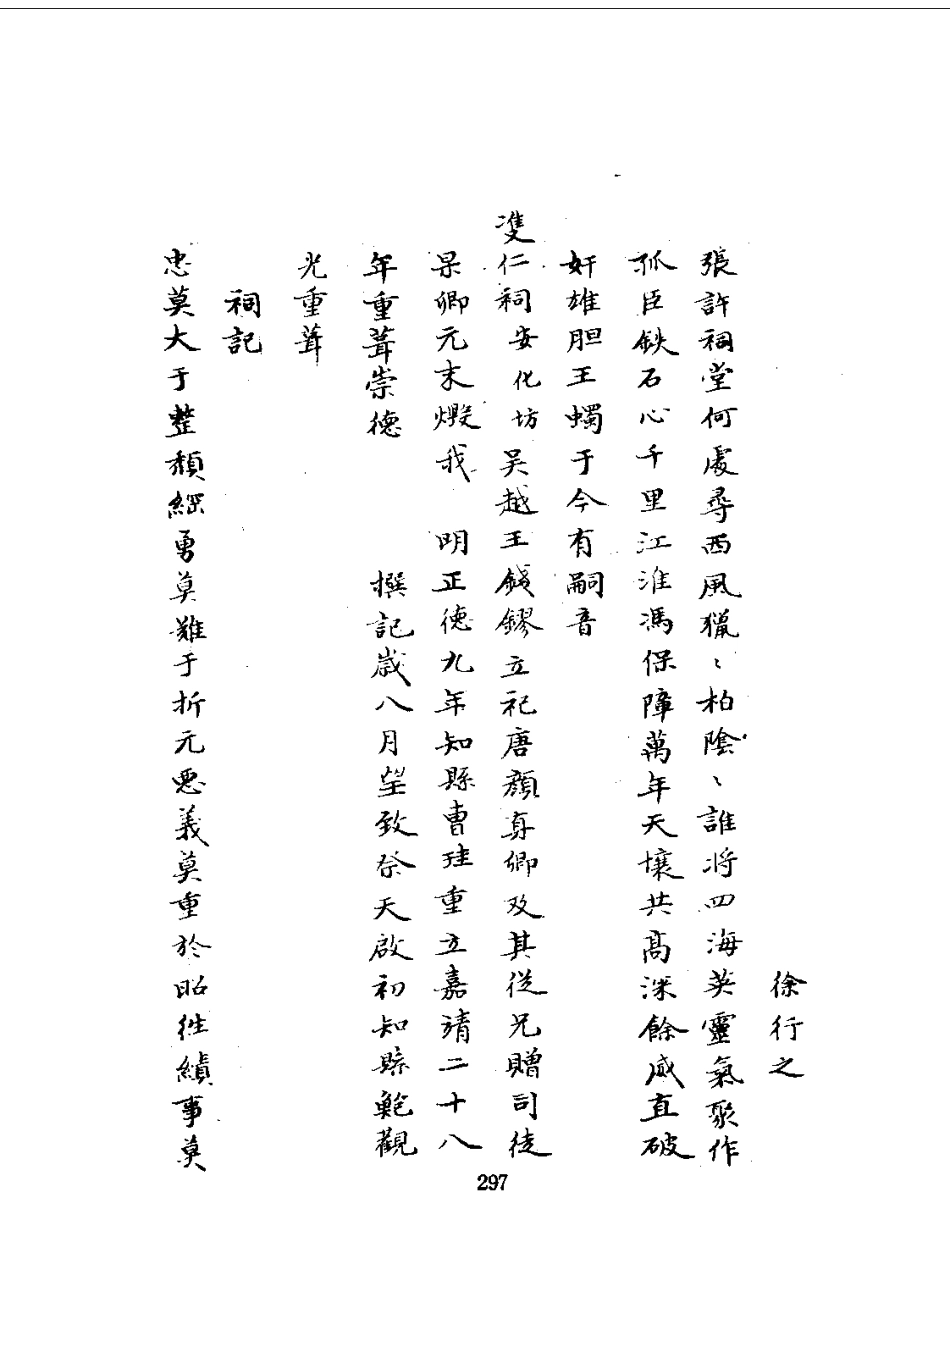 徐行之
張許祠堂何處尋西風獵〻柏陰〻誰將四海英靈氣聚作
孤臣鉄石心千里江淮馮保障萬年天壤共高深餘威直破
奸雄胆王蠋于今有嗣音
雙仁祠安化坊吳越王錢鏐立祀唐顏真卿及其從兄贈司徒
杲卿元末燬我 明正德九年知縣曹珪重立嘉靖二十八
年重葺崇德 撰記歲八月望致祭天啟初知縣鮑觀
光重葺
祠記
忠莫大于整頹綱勇莫難于折元惡義莫重於昭徃績事莫
297